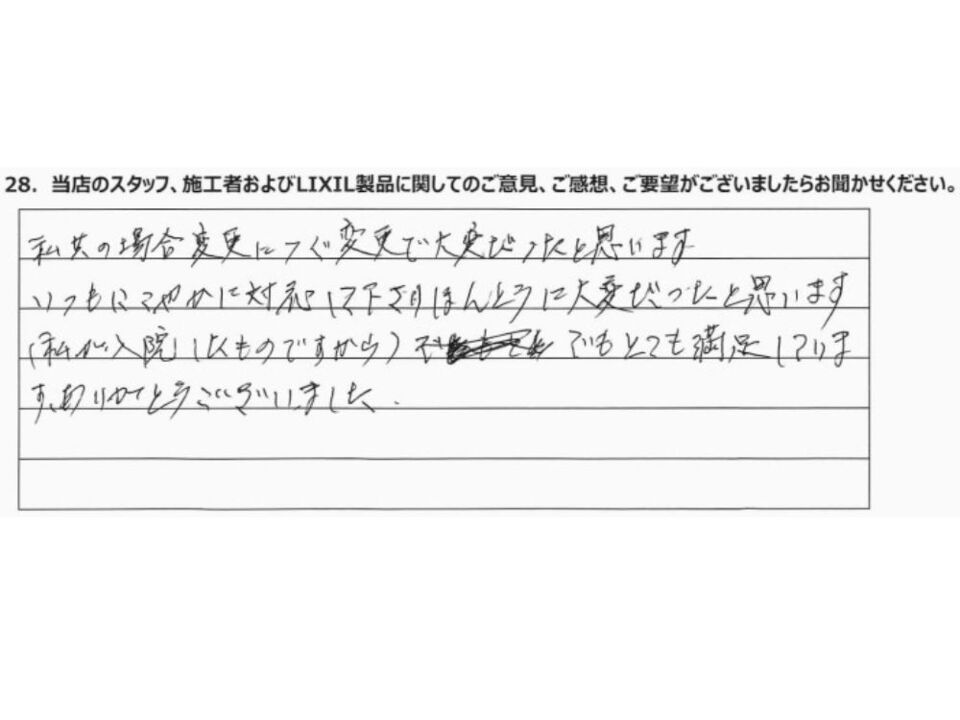 28. 当店のスタッフ、施工者およびLIXIL製品に関してのご意見、ご感想、ご要望がございましたらお聞かせください。
私共の場合変更につぐ変更で大変だったと思います
いつもにこやかに対応して下さりほんとうに大変だったと思います
(私が入院したものですから) でもとても満足していま
す、ありがとうございました.